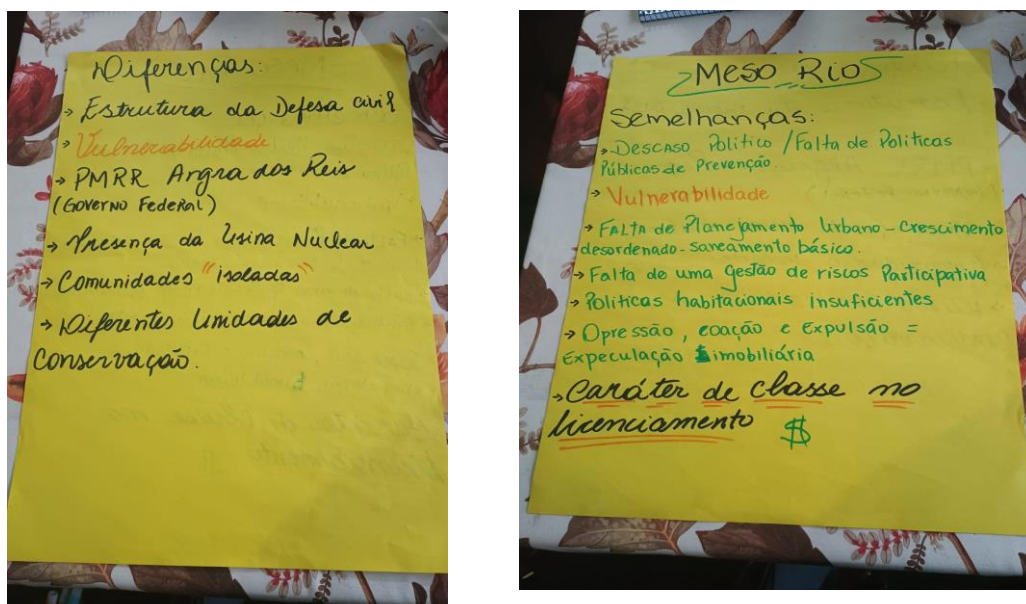 Diferenças:
→ Estrutura da Defesa civil
→ Vulnerabilidade
→ PMRR Angra dos Reis
(GOVERNO FEDERAL)
→ Presença da Usina Nuclear
→ Comunidades "isoladas"
→ Diferentes Unidades de
Conservação.
MESO RIO
Semelhanças:
→ DESCASO Político / Falta de Políticas
Públicas de Prevenção.
→ Vulnerabilidade
→ FALTA de Planejamento Urbano - Crescimento
desordenado - saneamento básico.
→ Falta de uma gestão de riscos Participativa
→ Políticas habitacionais insuficientes
→ Opressão, coação e Expulsão =
Expeculação imobiliária
→ Caráter de classe no
licenciamento $